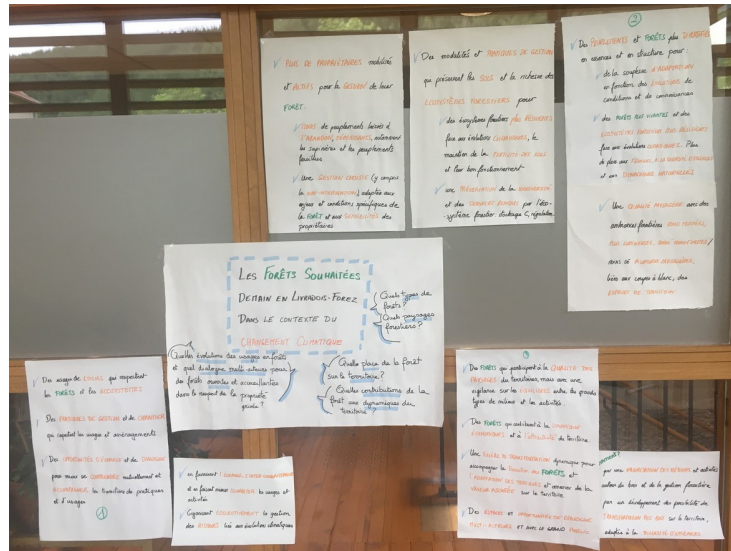 ✓ PLUS DE PROPRIÉTAIRES mobilisés
et ACTIFS pour la GESTION de leur
FORÊT.
✓ MOINS de peuplements laissés à
l'ABANDON, DÉPÉRISSANTS, notamment
les sapinières et les peuplements
feuillus
✓ Une GESTION CHOISIE (y compris
la NON-INTERVENTION), adaptée aux
enjeux et conditions spécifiques de
la FORÊT et aux SENSIBILITÉS des
propriétaires
✓ Des modalités et PRATIQUES DE GESTION
qui préservent les SOLS et la richesse des
ECOSYSTÈMES FORESTIERS pour
✓ des écosystèmes forestiers plus RÉSILIENTS
face aux évolutions CLIMATIQUES, le
maintien de la FERTILITÉ DES SOLS
et leur bon fonctionnement
✓ une PRÉSERVATION de la BIODIVERSITÉ
et des SERVICES RENDUS par l'éco-
système forestier: stockage C, régulation
②
✓ Des PEUPLEMENTS et FORÊTS plus DIVERSIFIÉS
en essences et en structure pour:
✓ de la souplesse d'ADAPTATION
en fonction des ÉVOLUTIONS de
conditions et de connaissances
✓ des FORÊTS PLUS VIVANTES et des
ECOSYSTÈMES FORESTIERS PLUS RÉSILIENTS
face aux évolutions CLIMATIQUES. Plus
de place aux FEUILLUS, à la DIVERSITÉ D'ESSENCES
et aux DYNAMIQUES NATURELLES
✓ Une QUALITÉ PAYSAGÈRE avec des
ambiances forestières MOINS FERMÉES,
PLUS LUMINEUSES, MOINS UNIFORMES/
moins de RUPTURES PAYSAGÈRES,
liées aux coupes à blanc, des
ESPACES DE TRANSITION
LES FORÊTS SOUHAITÉES
DEMAIN EN LIVRADOIS-FOREZ
DANS LE CONTEXTE DU
CHANGEMENT CLIMATIQUE
Quels types de
forêts?
Quels paysages
forestiers?
Quelles évolutions des usages en forêts
et quel dialogue multi acteurs pour
des forêts ouvertes et accueillantes
dans le respect de la propriété
privée?
Quelle place de la forêt
sur le territoire?
Quelles contributions de la
forêt aux dynamiques du
territoire?
✓ Des usages de LOISIRS qui respectent
les FORÊTS et les ACCESSIBILITÉS
✓ Des PRATIQUES DE GESTION et de CHANTIER
qui respectent les usages et aménagements
✓ Des OPPORTUNITÉS D'ÉCHANGE et de DIALOGUE
pour mieux se COMPRENDRE mutuellement et
ACCOMPAGNER les transitions de pratiques
et d'usages
①
✓ en favorisant l'ÉCOUTE, L'INTER-CONNAISSANCE
et en faisant mieux COHABITER les usages et
activités
✓ Organisant COLLECTIVEMENT la gestion
des RISQUES liés aux évolutions climatiques
③
✓ Des FORÊTS qui participent à la QUALITÉ DES
PAYSAGES du territoire, mais avec une
vigilance sur les ÉQUILIBRES entre les grands
types de milieux et les activités.
✓ Des FORÊTS qui contribuent à la DYNAMIQUE
ÉCONOMIQUE et à l'attractivité du territoire.
✓ Une FILIÈRE DE TRANSFORMATION dynamique pour
accompagner la transition des FORÊTS et
l'évolution des RESSOURCES et ramener de la
VALEUR AJOUTÉE sur le territoire.
✓ Des ESPACES et OPPORTUNITÉS DE DIALOGUE
MULTI-ACTEURS ET AVEC LE GRAND PUBLIC
par une VALORISATION DES MÉTIERS et activités
autour du bois et de la gestion forestière
par un développement des possibilités de
TRANSFORMATION DES BOIS sur le territoire,
adaptée à la DIVERSITÉ D'ESSENCES